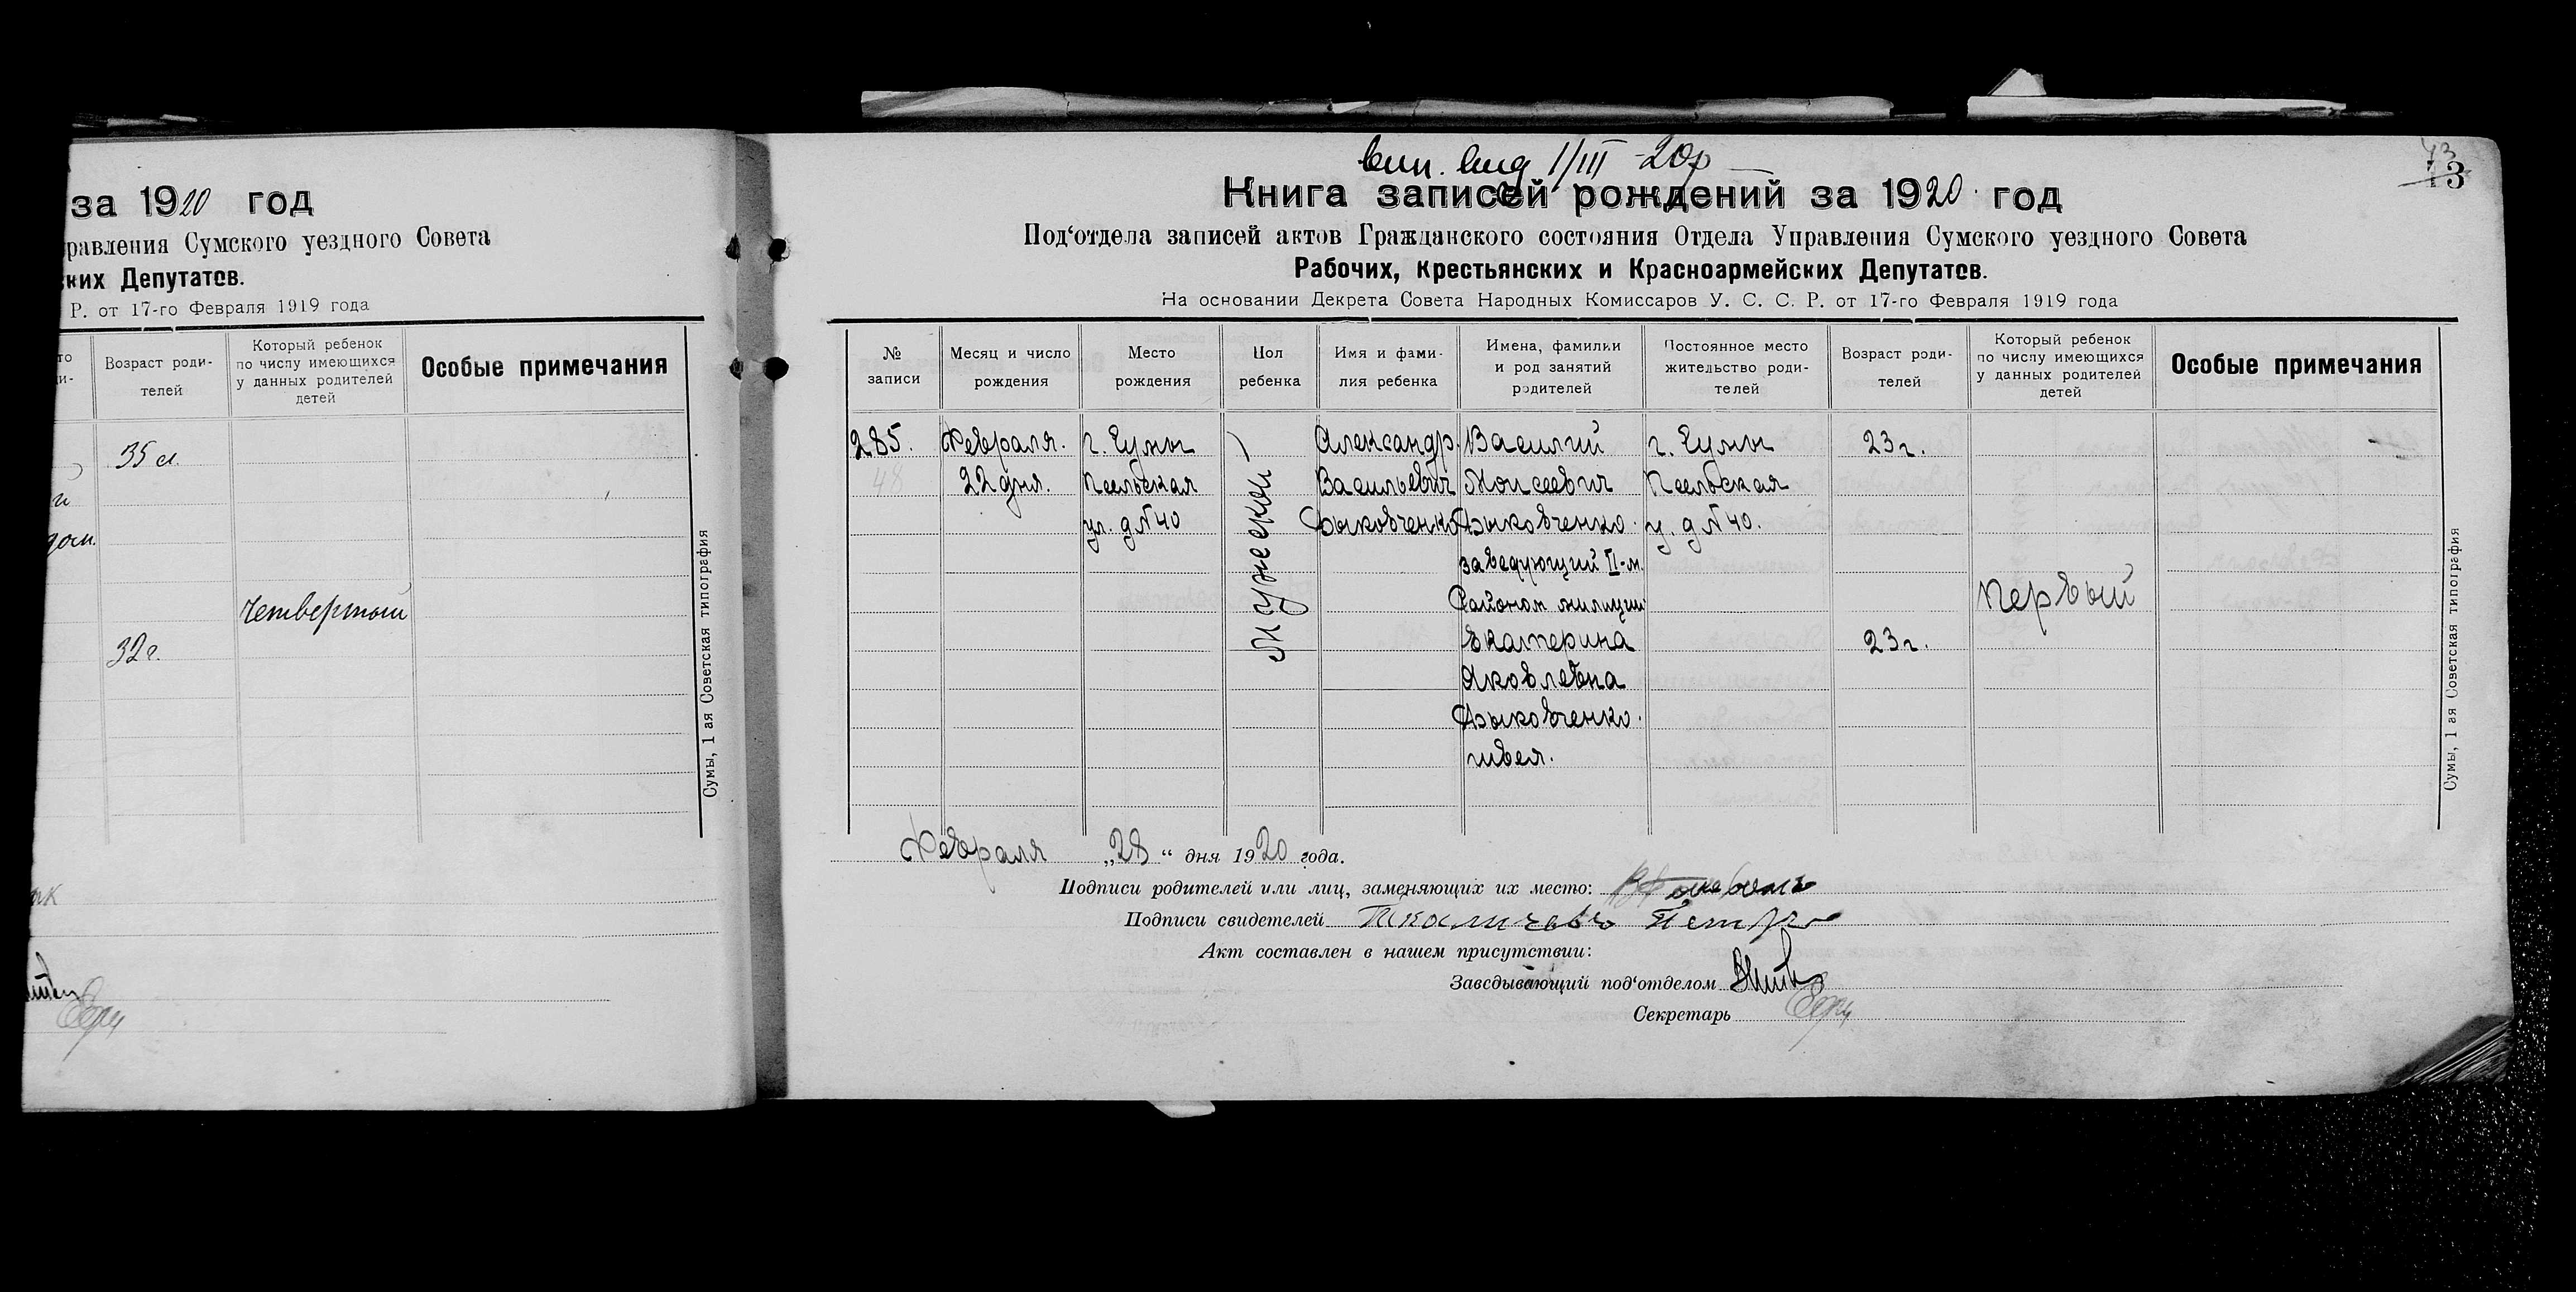 за 1920 год
равления Сумского уездного Совета
ких Депутатов.
Р. от 17-го Февраля 1919 года
Возраст роди-
телей
Который ребенок
по числу имеющихся
у данных родителей
детей
Особые примечания
35 л.
Четвертый
32 г.
Сумы, 1 ая Советская типография
вып. I/III -20 р
73
Книга записей рождений за 1920 год
Под‘отдела записей актов Гражданского состояния Отдела Управления Сумского уездного Совета
Рабочих, Крестьянских и Красноармейских Депутатов.
На основании Декрета Совета Народных Комиссаров У. С. С. Р. от 17-го Февраля 1919 года
№
записи
Месяц и число
рождения
Место
рождения
Пол
ребенка
Имя и фами-
лия ребенка
Имена, фамилии
и род занятий
родителей
Постоянное место
жительство роди-
телей
Возраст роди-
телей
Который ребенок
по числу имеющихся
у данных родителей
детей
Особые примечания
285.
48
Февраля.
22 дня.
г. Сумы
Псельская
ул. д № 40
Мужеской
Александр
Васильевич
Василий
Моисеевич
заведующий II-м.
Районом милиции
Екатерина
Яковлевна
швея.
г. Сумы
Псельская
у. д № 40.
23 г.
23 г.
Первый
Сумы, 1 ая Советская типография
Февраля „28“ дня 1920 года.
Подписи родителей или лиц, заменяющих их место:
Подписи свидетелей Петръ
Акт составлен в нашем присутствии:
Заведывающий под‘отделом
Секретарь